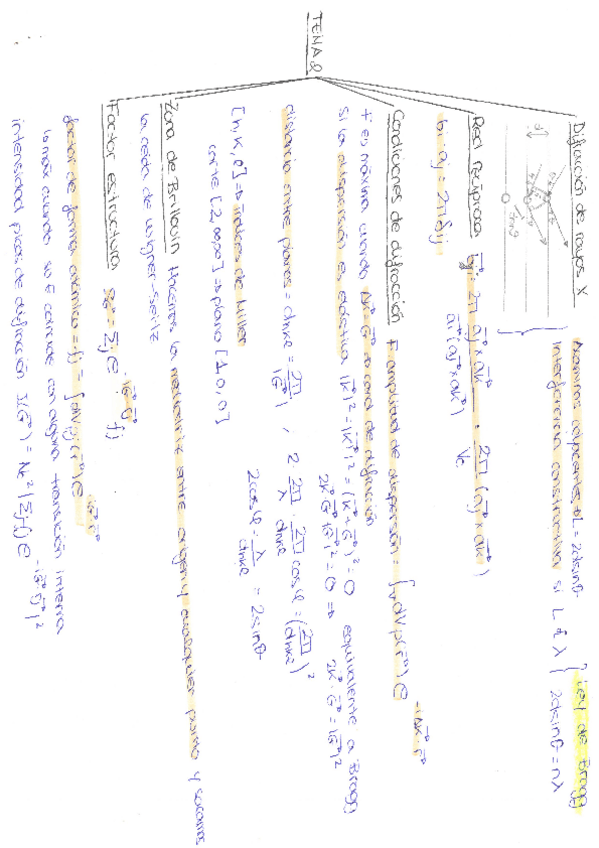 TEMA 2
Difracción de rayos X
d
Láminas adyacentes, ΔL = 2dsinθ
Interferencia constructiva si L ∝ λ
Ley de Bragg
2dsinθ = nλ
Red recíproca bi = 2π aj × ak / ai (aj × ak) = 2π / Vc (aj × ak)
bi · aj = 2πδij
Condiciones de difracción F amplitud de dispersión = ∫v dV ρ(r) e^-iΔk·r
F es máxima cuando ΔK = G → cond de difracción
Si la dispersión es elástica |K|² = |K'|² = (K + G)² = 0 equivalente a Bragg
2K G |G|² = 0 ⇒ 2K · G = |G|²
distancia entre planos = dhkl = 2π / |G| , 2 2π/λ · 2π/dhkl cosφ = (2π/dhkl)²
2cosφ = λ/dhkl = 2sinθ
[h, k, l] → Índices de Miller
corte [2, ∞, ∞] → plano [1, 0, 0]
Zona de Brillouin Hacemos la mediatriz entre origen y cualquier punto y sacamos
la celda de wigner-seitz
Factor estructura SG = Σj e^-iG·rj fj
factor de forma atómico = fj = ∫dV ρj(r) e^-iG·r
lo máx cuando su E coincide con alguna transición interna
intensidad picos de difracción I(G) = Nc² |Σj fj e^-iG·rj|²